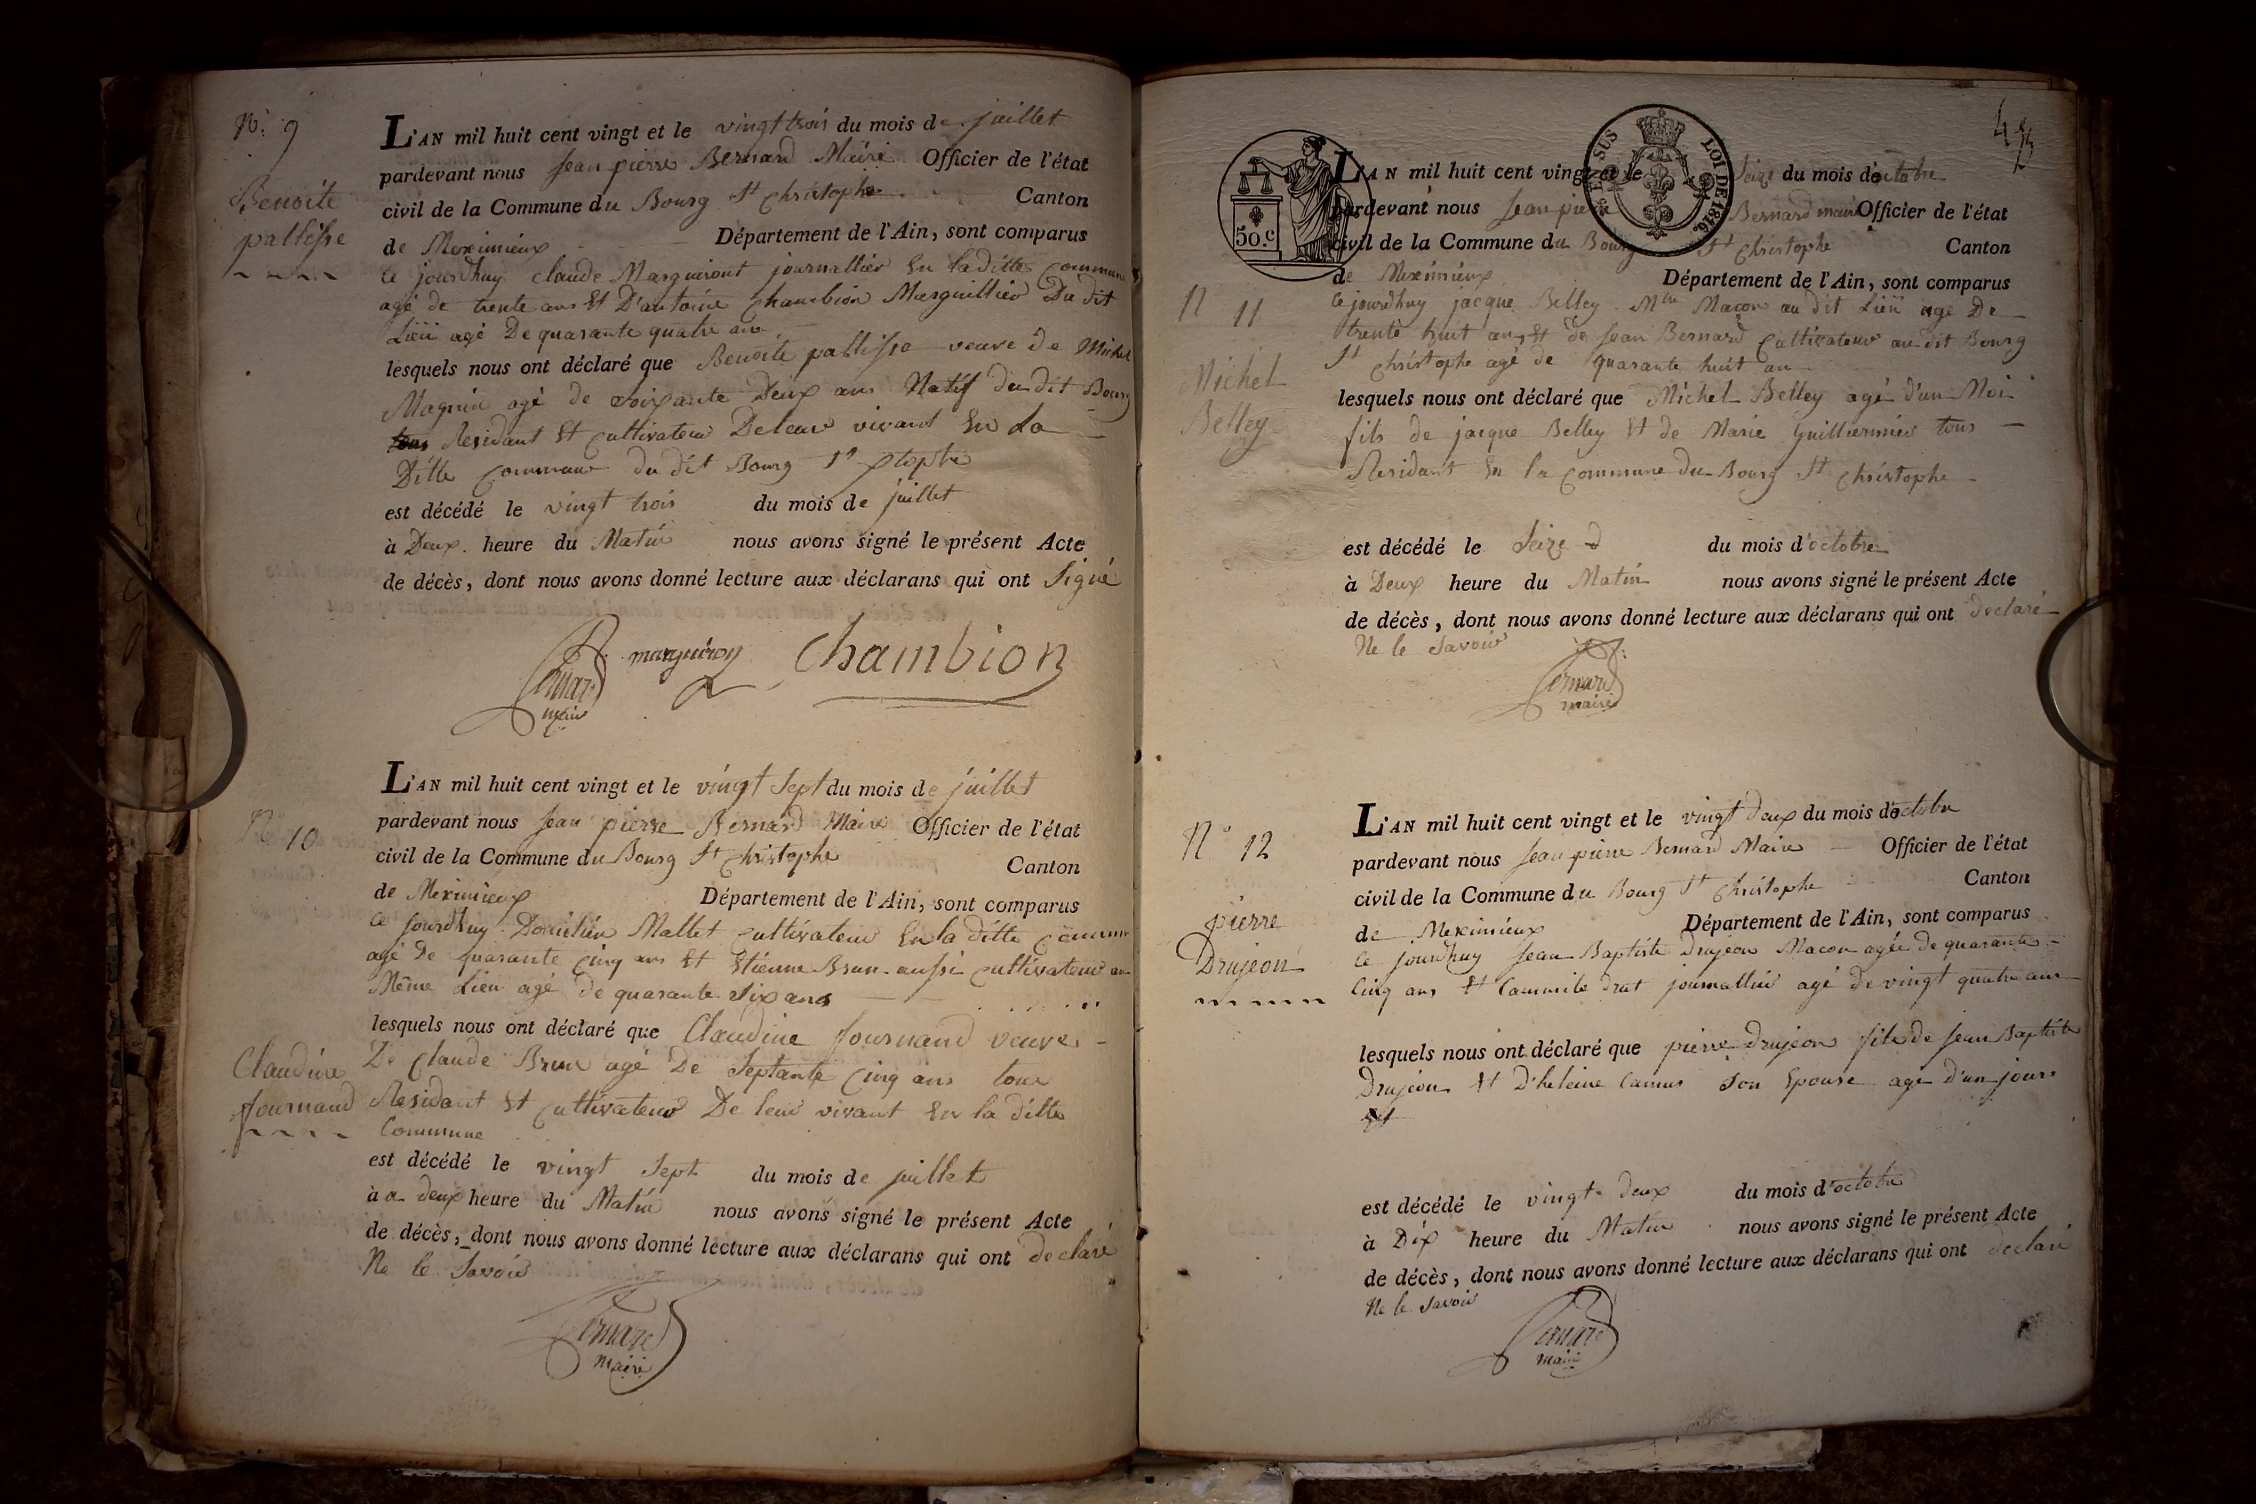 N°. 9
Benoite
pallisse
L'AN mil huit cent vingt et le vingt trois du mois de juillet
pardevant nous Jean pierre Bernard Maire Officier de l'état
civil de la Commune du Bourg St Christophe Canton
de Meximieux Département de l'Ain, sont comparus
Ce jourdhuy claude Marguiront journallier En la ditte commune
agé de trente ans Et D'antoine Chambion Marguillier Du dit
Lieu agé De quarante quatre ans
lesquels nous ont déclaré que Benoite pallisse veuve de Michel
Magnin agé de soixante Deux ans Natif du dit Bourg
Residant Et cultivateur De leur vivant En La
Ditte commune du dit Bourg St xtophe
est décédé le vingt trois du mois de juillet
à Deux heure du Matin nous avons signé le présent Acte
de décès, dont nous avons donné lecture aux déclarans qui ont Signé
Bernard
maire
marguiron
Chambion
N° 10
Claudine
fournand
L'AN mil huit cent vingt et le vingt Sept du mois de juillet
pardevant nous Jean pierre Bernard Maire Officier de l'état
civil de la Commune du Bourg St Christophe Canton
de Meximieux Département de l'Ain, sont comparus
Ce jourdhuy Mallet cultivateur En la ditte commune
agé De quarante cinq ans Et Etienne Brun aussi cultivateur au
Même Lieu agé de quarante Six ans
lesquels nous ont déclaré que Claudine fournand veuve
De Claude Brun agé De Septante Cinq ans tous
Residant Et cultivateur De leur vivant En la ditte
Commune
est décédé le vingt Sept du mois de juillet
à a deux heure du Matin nous avons signé le présent Acte
de décès, dont nous avons donné lecture aux déclarans qui ont declaré
Ne le Savoir
Bernard
maire
50.c
EN SUS LOI DE 1816.
N 11
Michel
Belley
L'AN mil huit cent vingt et le Seize du mois d'octobre
pardevant nous Jean pierre Bernard maire Officier de l'état
civil de la Commune du Bourg St Christophe Canton
de Meximieux Département de l'Ain, sont comparus
Ce jourdhuy jacque Belley Mtre Maçon au dit Lieu agé De
trente huit ans Et de Jean Bernard Cultivateur au dit Bourg
St Christophe agé de quarante huit an
lesquels nous ont déclaré que Michel Belley agé d'un Moi
fils de jacque Belley Et de Marie Guillermier tous
Residant En la Commune du Bourg St Christophe
est décédé le Seize du mois d'octobre
à Deux heure du Matin nous avons signé le présent Acte
de décès, dont nous avons donné lecture aux déclarans qui ont declaré
Ne le Savoir
Bernard
maire
N° 12
pierre
Drujeon
L'AN mil huit cent vingt et le vingt deux du mois d'octobre
pardevant nous Jean pierre Bernard Maire Officier de l'état
civil de la Commune du Bourg St Christophe Canton
de Meximieux Département de l'Ain, sont comparus
Ce jourdhuy Jean Baptiste Drujeon Macon agée de quarante
Cinq ans Et Cammile drat journallier agé de vingt quatre ans
lesquels nous ont déclaré que pierre drujeon fils de Jean Baptiste
Drujeon Et D'heleine Camus Son Epouse age d'un jour
Et
est décédé le vingt deux du mois d'octobre
à Dix heure du Matin nous avons signé le présent Acte
de décès, dont nous avons donné lecture aux déclarans qui ont declaré
Ne le Savoir
Bernard
maire